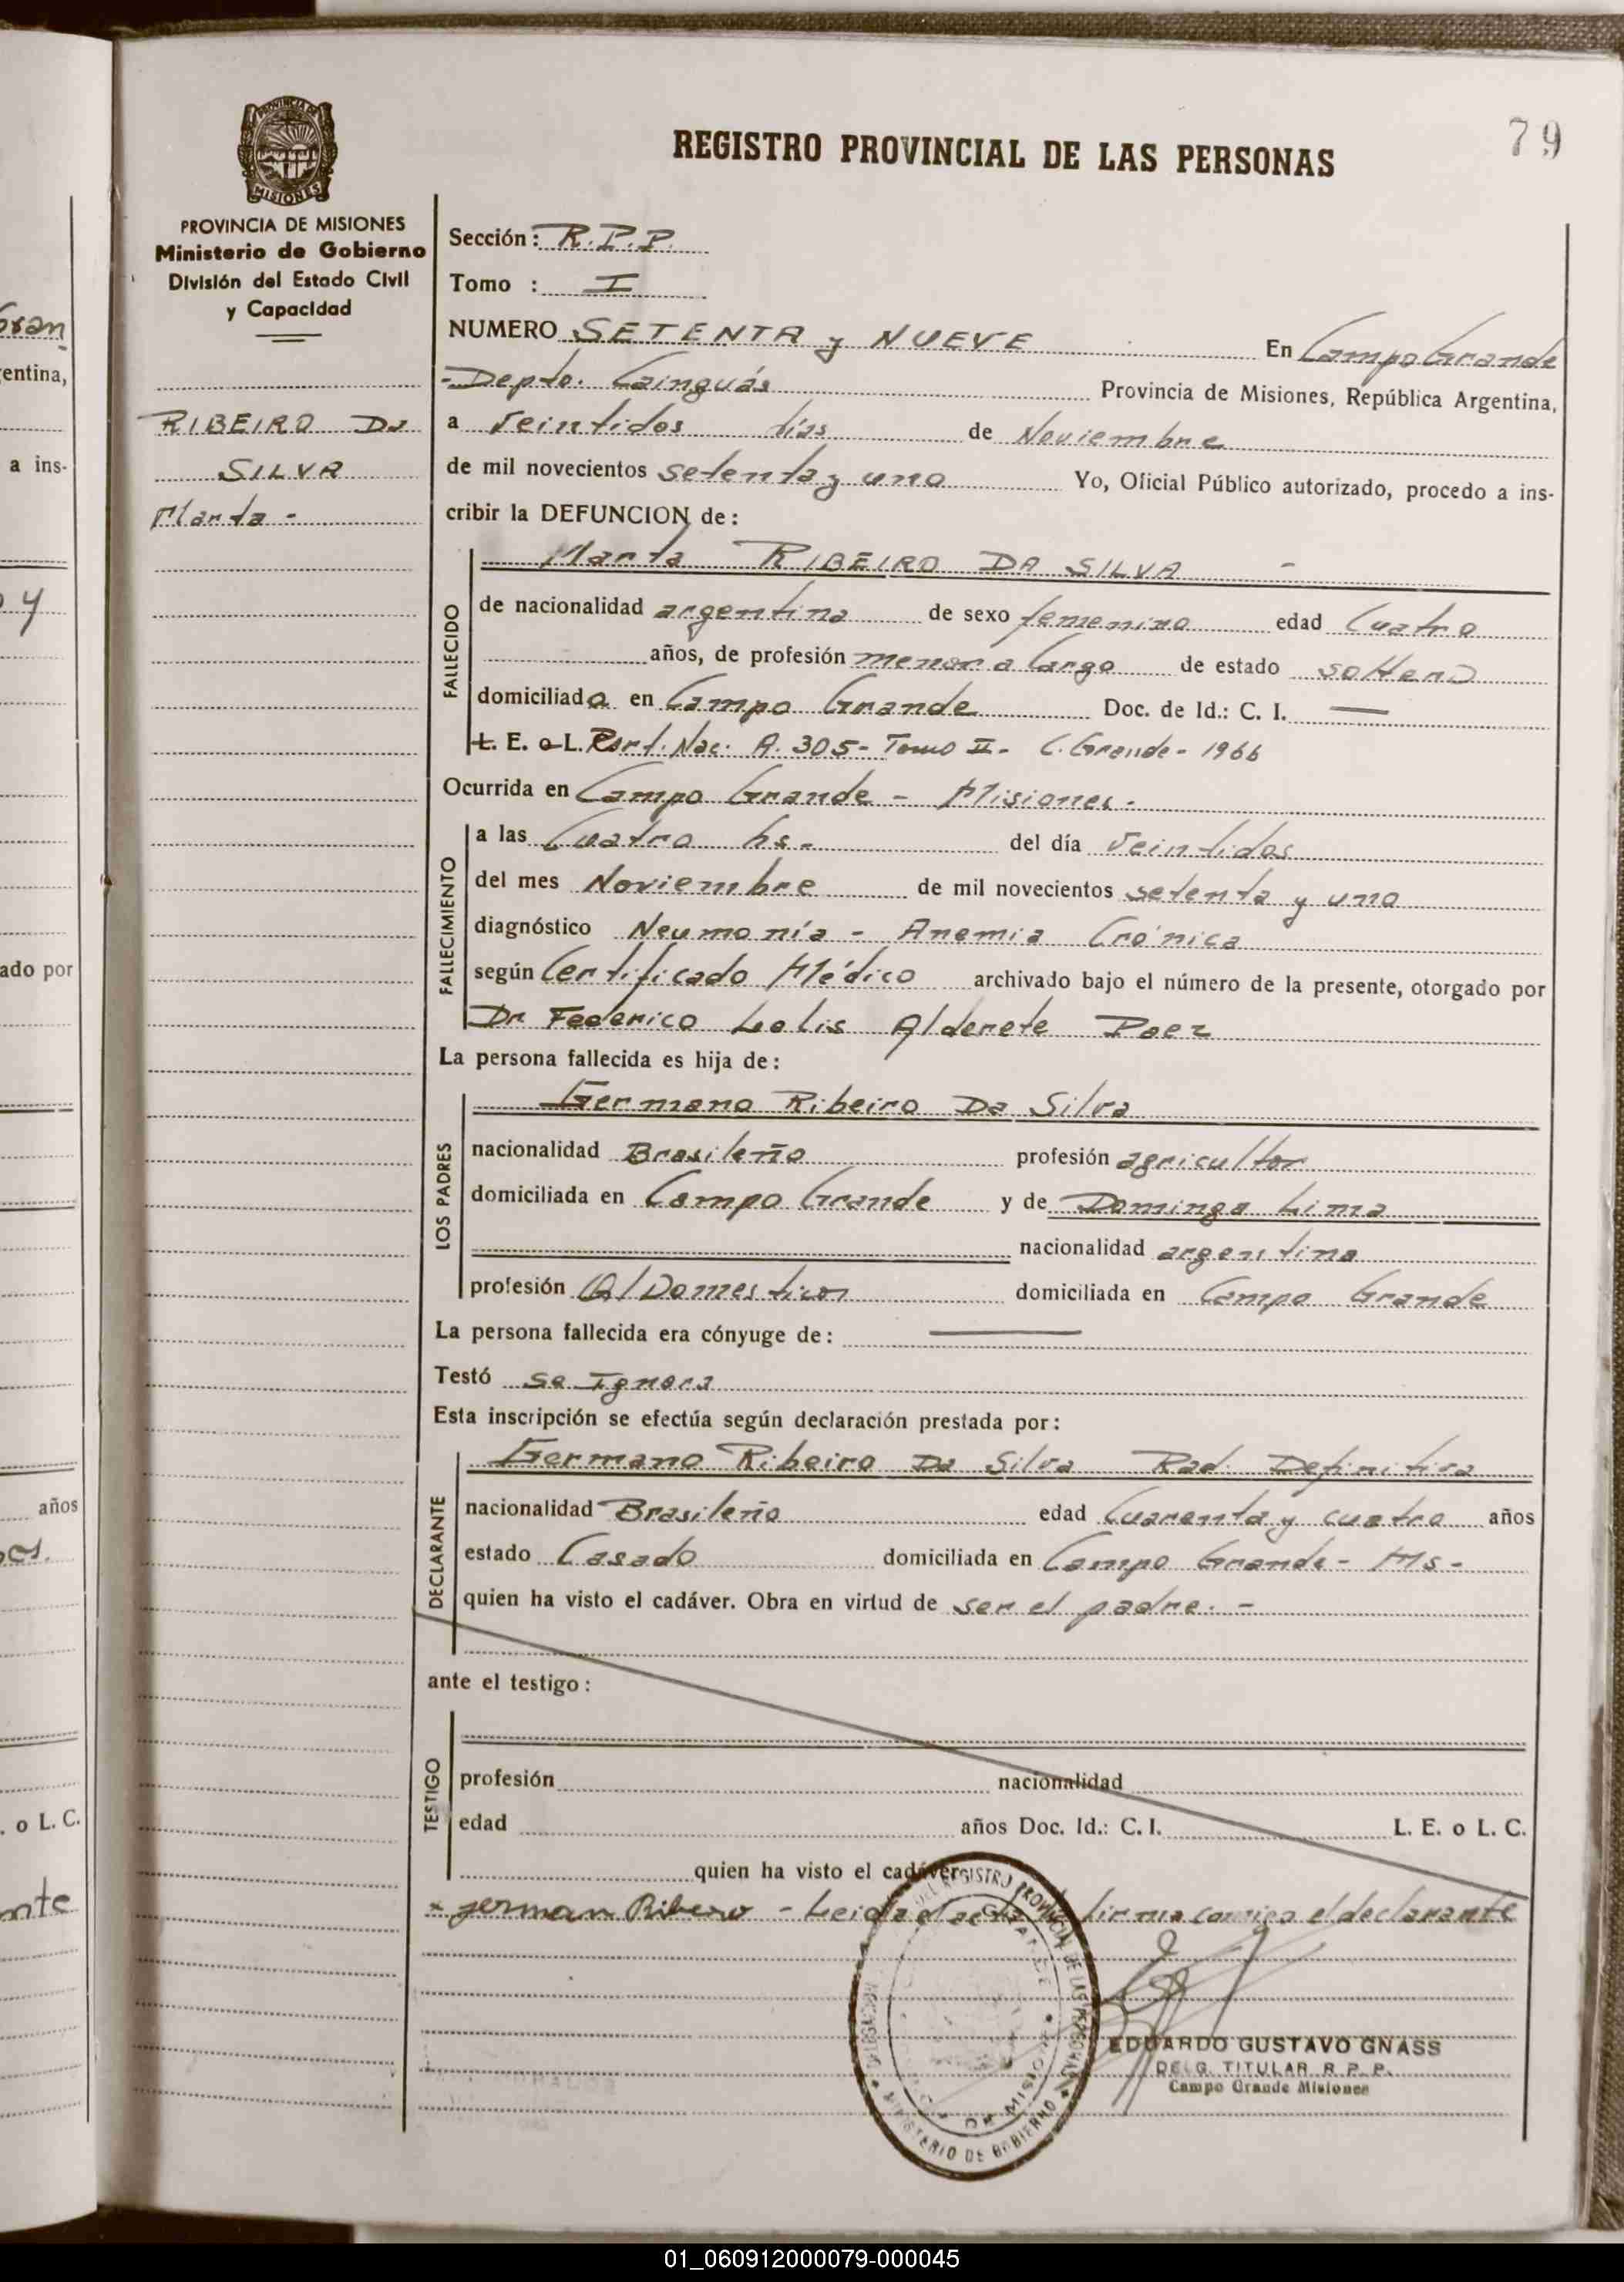 79
REGISTRO PROVINCIAL DE LAS PERSONAS
PROVINCIA DE MISIONES
Ministerio de Gobierno
División del Estado Civil
y Capacidad
RIBEIRO Da
SILVA
Marta -
Sección: R.P.P.
Tomo : I
NUMERO SETENTA y NUEVE En Campo Grande
- Depto. Cainguás Provincia de Misiones, República Argentina,
a veintidos días de Noviembre
de mil novecientos setenta y uno Yo, Oficial Público autorizado, procedo a ins-
cribir la DEFUNCION de:
FALLECIDO
Marta RIBEIRO DA SILVA -
de nacionalidad argentina de sexo femenino edad Cuatro
años, de profesión menor a Cargo de estado soltera
domiciliada en Campo Grande Doc. de Id.: C. I. —
L. E. o L. Part. Nac. A. 305 - Tomo II - C. Grande - 1966
Ocurrida en Campo Grande - Misiones -
FALLECIMIENTO
a las Cuatro hs - del día veintidos
del mes Noviembre de mil novecientos setenta y uno
diagnóstico Neumonía - Anemia Crónica
según Certificado Médico archivado bajo el número de la presente, otorgado por
Dr Federico Alderete Paez
La persona fallecida es hija de:
LOS PADRES
Germano Ribeiro Da Silva
nacionalidad Brasileño profesión agricultor
domiciliada en Campo Grande y de Dominga Lima
nacionalidad argentina
profesión Q/Domesticos domiciliada en Campo Grande
La persona fallecida era cónyuge de: —
Testó se Ignora
Esta inscripción se efectúa según declaración prestada por:
DECLARANTE
Germano Ribeiro Da Silva Rad. Definitiva
nacionalidad Brasileño edad Cuarenta y cuatro años
estado Casado domiciliada en Campo Grande - Ms -
quien ha visto el cadáver. Obra en virtud de ser el padre. -
ante el testigo:
TESTIGO
profesión nacionalidad
edad años Doc. Id.: C. I. L. E. o L. C.
quien ha visto el cadáver
x german Ribero - Leida el acta firma conmigo el declarante
DELEGACION DEL REGISTRO PROVINCIAL DE LAS PERSONAS
MINISTERIO DE GOBIERNO
EDUARDO GUSTAVO GNASS
DELG. TITULAR R. P. P.
Campo Grande Misiones
Gran
entina,
a ins-
y
ado por
años
os.
. o L. C.
nte
01_060912000079-000045